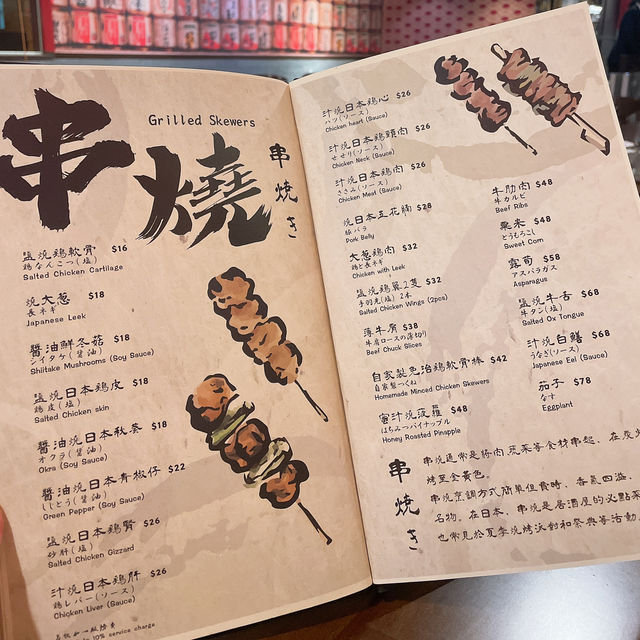 串
燒
Grilled Skewers
串焼き
塩燒鷄軟骨 $16
鶏なんこつ(塩)
Salted Chicken Cartilage
燒大葱 $18
長ネギ
Japanese Leek
醬油鮮冬菇 $18
シイタケ(醤油)
Shiitake Mushrooms (Soy Sauce)
塩燒日本鷄皮 $18
鶏皮(塩)
Salted Chicken skin
醬油燒日本秋葵 $18
オクラ(醤油)
Okra (Soy Sauce)
醬油燒日本青椒仔 $22
ししとう(醤油)
Green Pepper (Soy Sauce)
塩燒日本鷄腎 $26
砂肝(塩)
Salted Chicken Gizzard
汁燒日本鷄肝 $26
鶏レバー(ソース)
Chicken Liver (Sauce)
另收加一服務費
10% service charge
汁燒日本鷄心 $26
ハツ(ソース)
Chicken heart (Sauce)
汁燒日本鷄頸肉 $26
せせり(ソース)
Chicken Neck (Sauce)
汁燒日本鷄肉 $26
ささみ(ソース)
Chicken Meat (Sauce)
燒日本五花腩 $28
豚バラ
Pork Belly
大葱鷄肉 $32
鶏と長ネギ
Chicken with Leek
塩燒鷄翼2隻 $32
手羽先(塩) 2本
Salted Chicken Wings (2pcs)
薄牛肩 $38
牛肩ロースの薄切り
Beef Chuck Slices
自家製色治鷄軟骨棒 $42
自家製つくね
Homemade Minced Chicken Skewers
蜜汁燒菠蘿 $48
はちみつパイナップル
Honey Roasted Pinapple
牛肋肉 $48
牛カルビ
Beef Ribs
粟米 $48
とうもろこし
Sweet Corn
露筍 $58
アスパラガス
Asparagus
塩燒牛舌 $68
牛タン(塩)
Salted Ox Tongue
汁燒白鱔 $68
うなぎ(ソース)
Japanese Eel (Sauce)
茄子 $78
なす
Eggplant
串焼き
串燒通常是將肉、蔬菜等食材串起，在炭火
烤至金黃色。
串燒烹調方式簡單但費時，香氣四溢，
名物。在日本，串燒是居酒屋的必點菜
也常見於夏季燒烤派對和祭典等活動